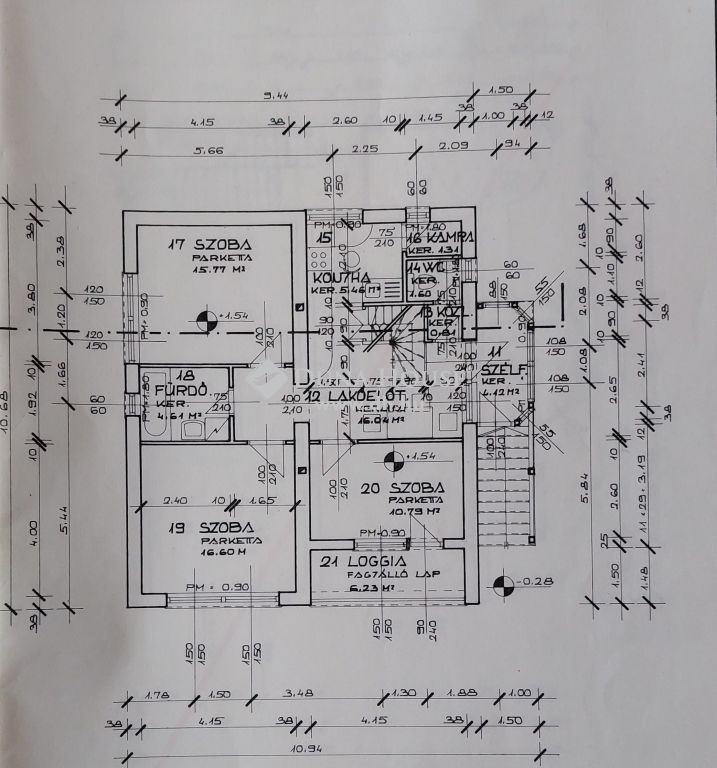 9.44
1.50
38
4.15
38
2.60
10
1.45
38
1.00
38
12
5.66
2.25
2.09
94
150
150
60
60
17 SZOBA
PARKETTA
15.77 M²
+1.54
15
KONYHA
KER. 5.46 M²
PM=0.90
75
210
PM=1.80
16 KAMRA
KER. 1.31
14 WC
KER.
1.60
13 KÖZ.
KER.
0.81
60
60
11
SZÉLF.
KER.
4.12 M²
108
150
108
150
55
150
55
150
88
150
120
150
PM=0.90
120
150
60
60
18
FÜRDŐ
KER.
4.61 M²
75
210
100
210
100
210
12 LAKÓELŐT.
16.04 M²
1.75
120
100
210
100
210
100
210
19 SZOBA
PARKETTA
16.60 M
2.40
10
1.65
PM = 0.90
20 SZOBA
PARKETTA
10.79 M²
+1.54
PM=0.90
21 LOGGIA
FAGYÁLLÓ LAP
6.23 M²
-0.28
150
150
150
150
150
150
90
240
10.68
38
3.80
10
1.92
10
4.00
38
2.38
1.20
1.66
5.44
1.68
2.08
1.08
5.84
38
90
10
1.10
10
90
10
2.65
10
2.60
25
1.50
2.60
12
2.41
12
3.19
11 · 29
1.48
38
38
1.78
1.50
3.48
1.30
1.88
1.00
38
4.15
38
4.15
38
1.50
10.94